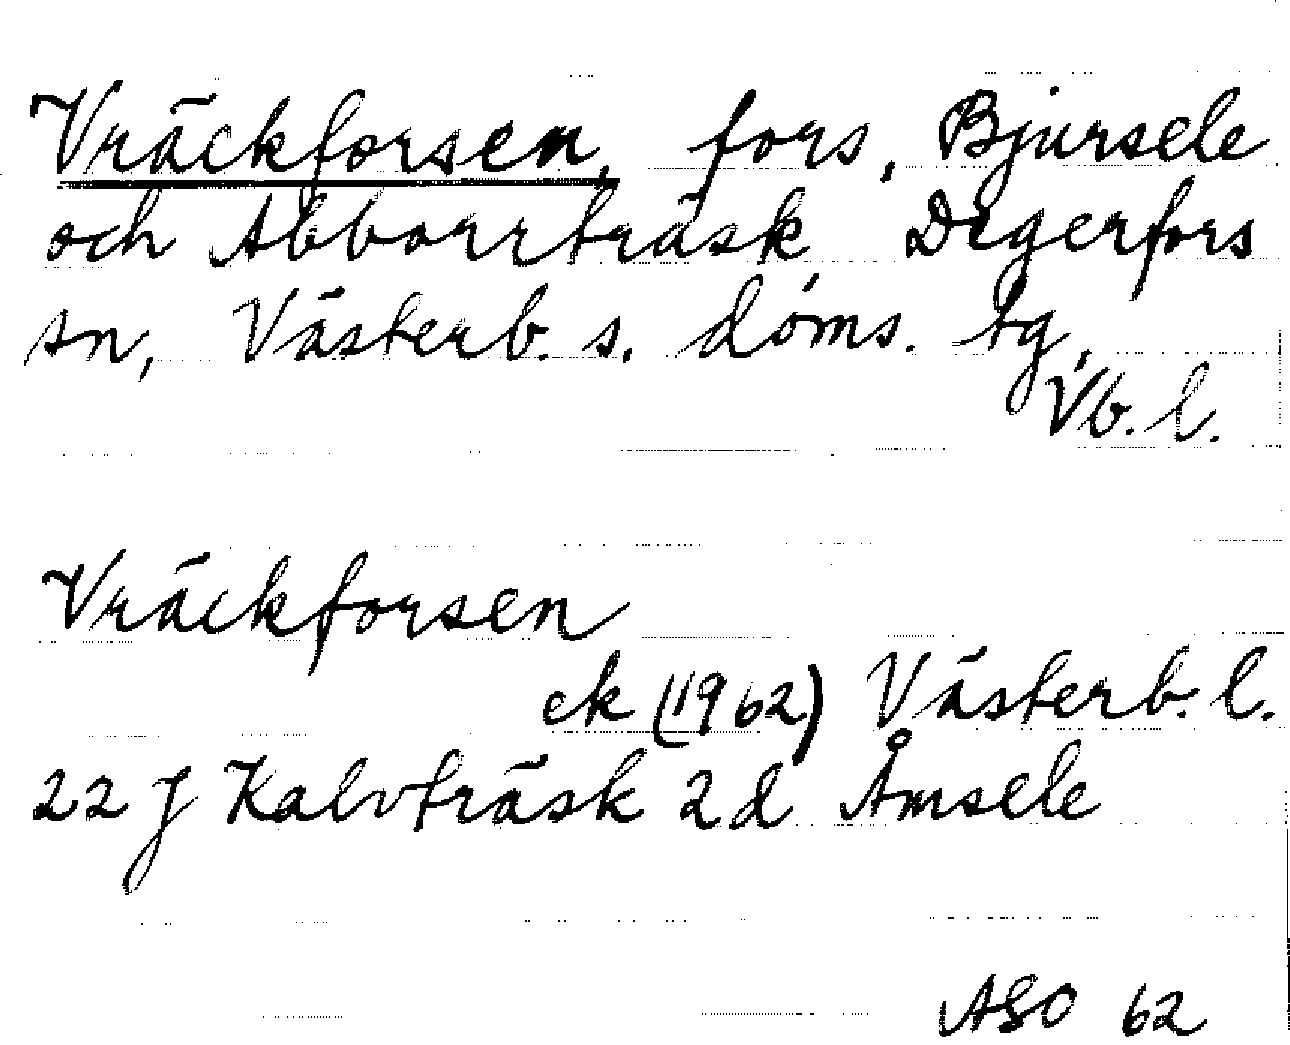 Vräckforsen, fors, Bjursele
och Abborrträsk, Degerfors
sn, Västerb. s. doms. tg,
Vb. l.
Vräckforsen
ek (1962) Västerb. l.
22 J Kalvträsk 2d Åmsele
ASO 62